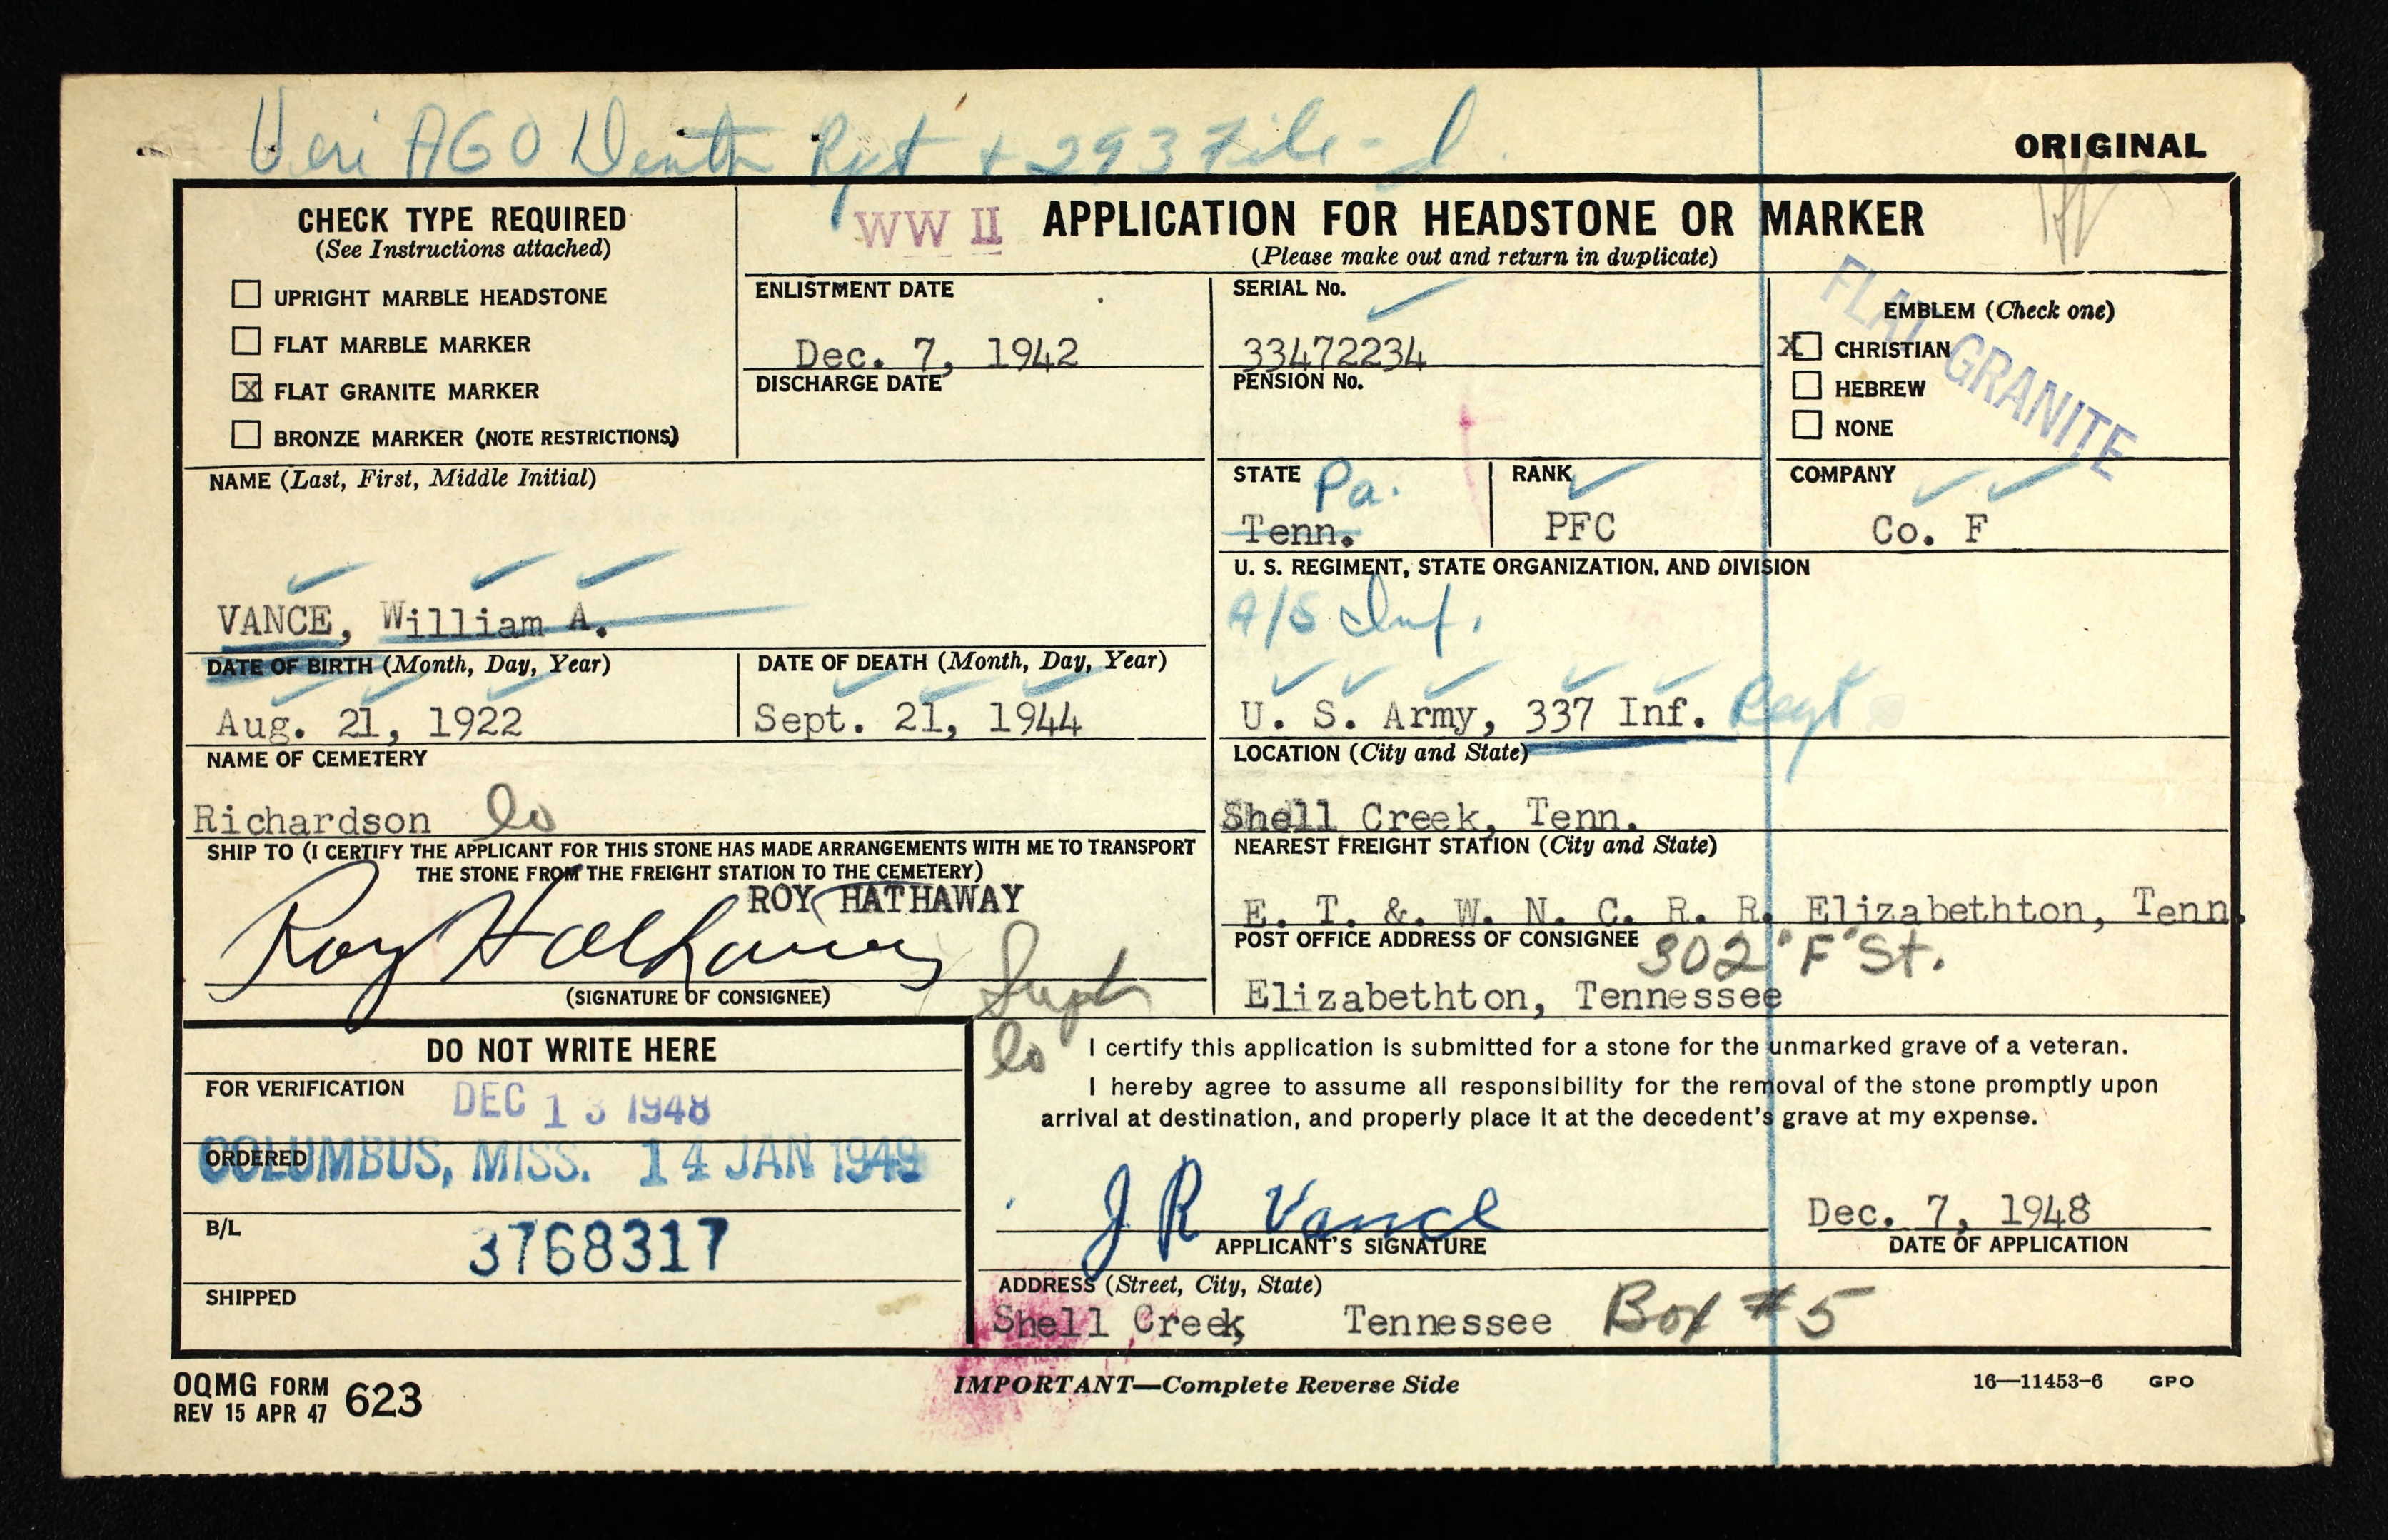 Veri AGO Death Rpt + 293 File - 
ORIGINAL
CHECK TYPE REQUIRED
(See Instructions attached)
☐ UPRIGHT MARBLE HEADSTONE
☐ FLAT MARBLE MARKER
☒ FLAT GRANITE MARKER
☐ BRONZE MARKER (NOTE RESTRICTIONS)
WW II APPLICATION FOR HEADSTONE OR MARKER
(Please make out and return in duplicate)
ENLISTMENT DATE
Dec. 7, 1942
DISCHARGE DATE
SERIAL No.
33472234
PENSION No.
EMBLEM (Check one)
X☐ CHRISTIAN
☐ HEBREW
☐ NONE
FLAT GRANITE
NAME (Last, First, Middle Initial)
VANCE, William A.
STATE Pa.
Tenn.
RANK
PFC
COMPANY
Co. F
U. S. REGIMENT, STATE ORGANIZATION, AND DIVISION
A/S Inf.
U. S. Army, 337 Inf. Regt
DATE OF BIRTH (Month, Day, Year)
Aug. 21, 1922
DATE OF DEATH (Month, Day, Year)
Sept. 21, 1944
NAME OF CEMETERY
Richardson
LOCATION (City and State)
Shell Creek, Tenn.
SHIP TO (I CERTIFY THE APPLICANT FOR THIS STONE HAS MADE ARRANGEMENTS WITH ME TO TRANSPORT
THE STONE FROM THE FREIGHT STATION TO THE CEMETERY)
ROY HATHAWAY
Roy Hathaway
(SIGNATURE OF CONSIGNEE)
NEAREST FREIGHT STATION (City and State)
E. T. &. W. N. C. R. R. Elizabethton, Tenn.
POST OFFICE ADDRESS OF CONSIGNEE 302 "F" St.
Elizabethton, Tennessee
DO NOT WRITE HERE
FOR VERIFICATION DEC 13 1948
ORDERED COLUMBUS, MISS. 14 JAN 1949
B/L 3768317
SHIPPED
I certify this application is submitted for a stone for the unmarked grave of a veteran.
I hereby agree to assume all responsibility for the removal of the stone promptly upon
arrival at destination, and properly place it at the decedent's grave at my expense.
J R Vance
APPLICANT'S SIGNATURE
Dec. 7, 1948
DATE OF APPLICATION
ADDRESS (Street, City, State)
Shell Creek, Tennessee Box #5
OQMG FORM 623
REV 15 APR 47
IMPORTANT—Complete Reverse Side
16—11453-6 GPO